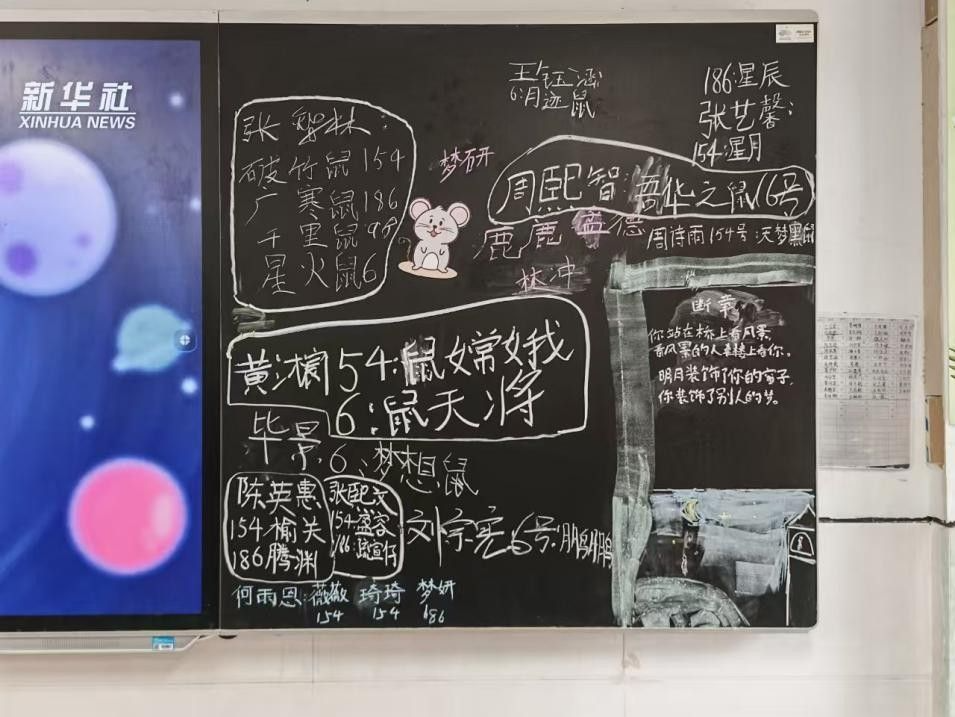 新华社
XINHUA NEWS
张 林:
破竹鼠154
广寒鼠186
千里鼠98
星火鼠6
梦研
王钰涵
6:月 鼠
186:星辰
张艺馨:
154:星月
周熙智:吾华之鼠16号
周诗雨154号:天梦黑鼠
鹿鹿 孟德
林冲
断章:
你站在桥上看风景,
看风景的人在楼上看你。
明月装饰了你的窗子,
你装饰了别人的梦。
黄 154:鼠嫦娥
6:鼠天将
毕景
6:梦想鼠
陈英惠
154榆关
186腾渊
张熙文
154:盛容
186:
刘宗宪:6号:鹏鹏
何雨恩:薇薇 琦琦 梦妍
154 154 186